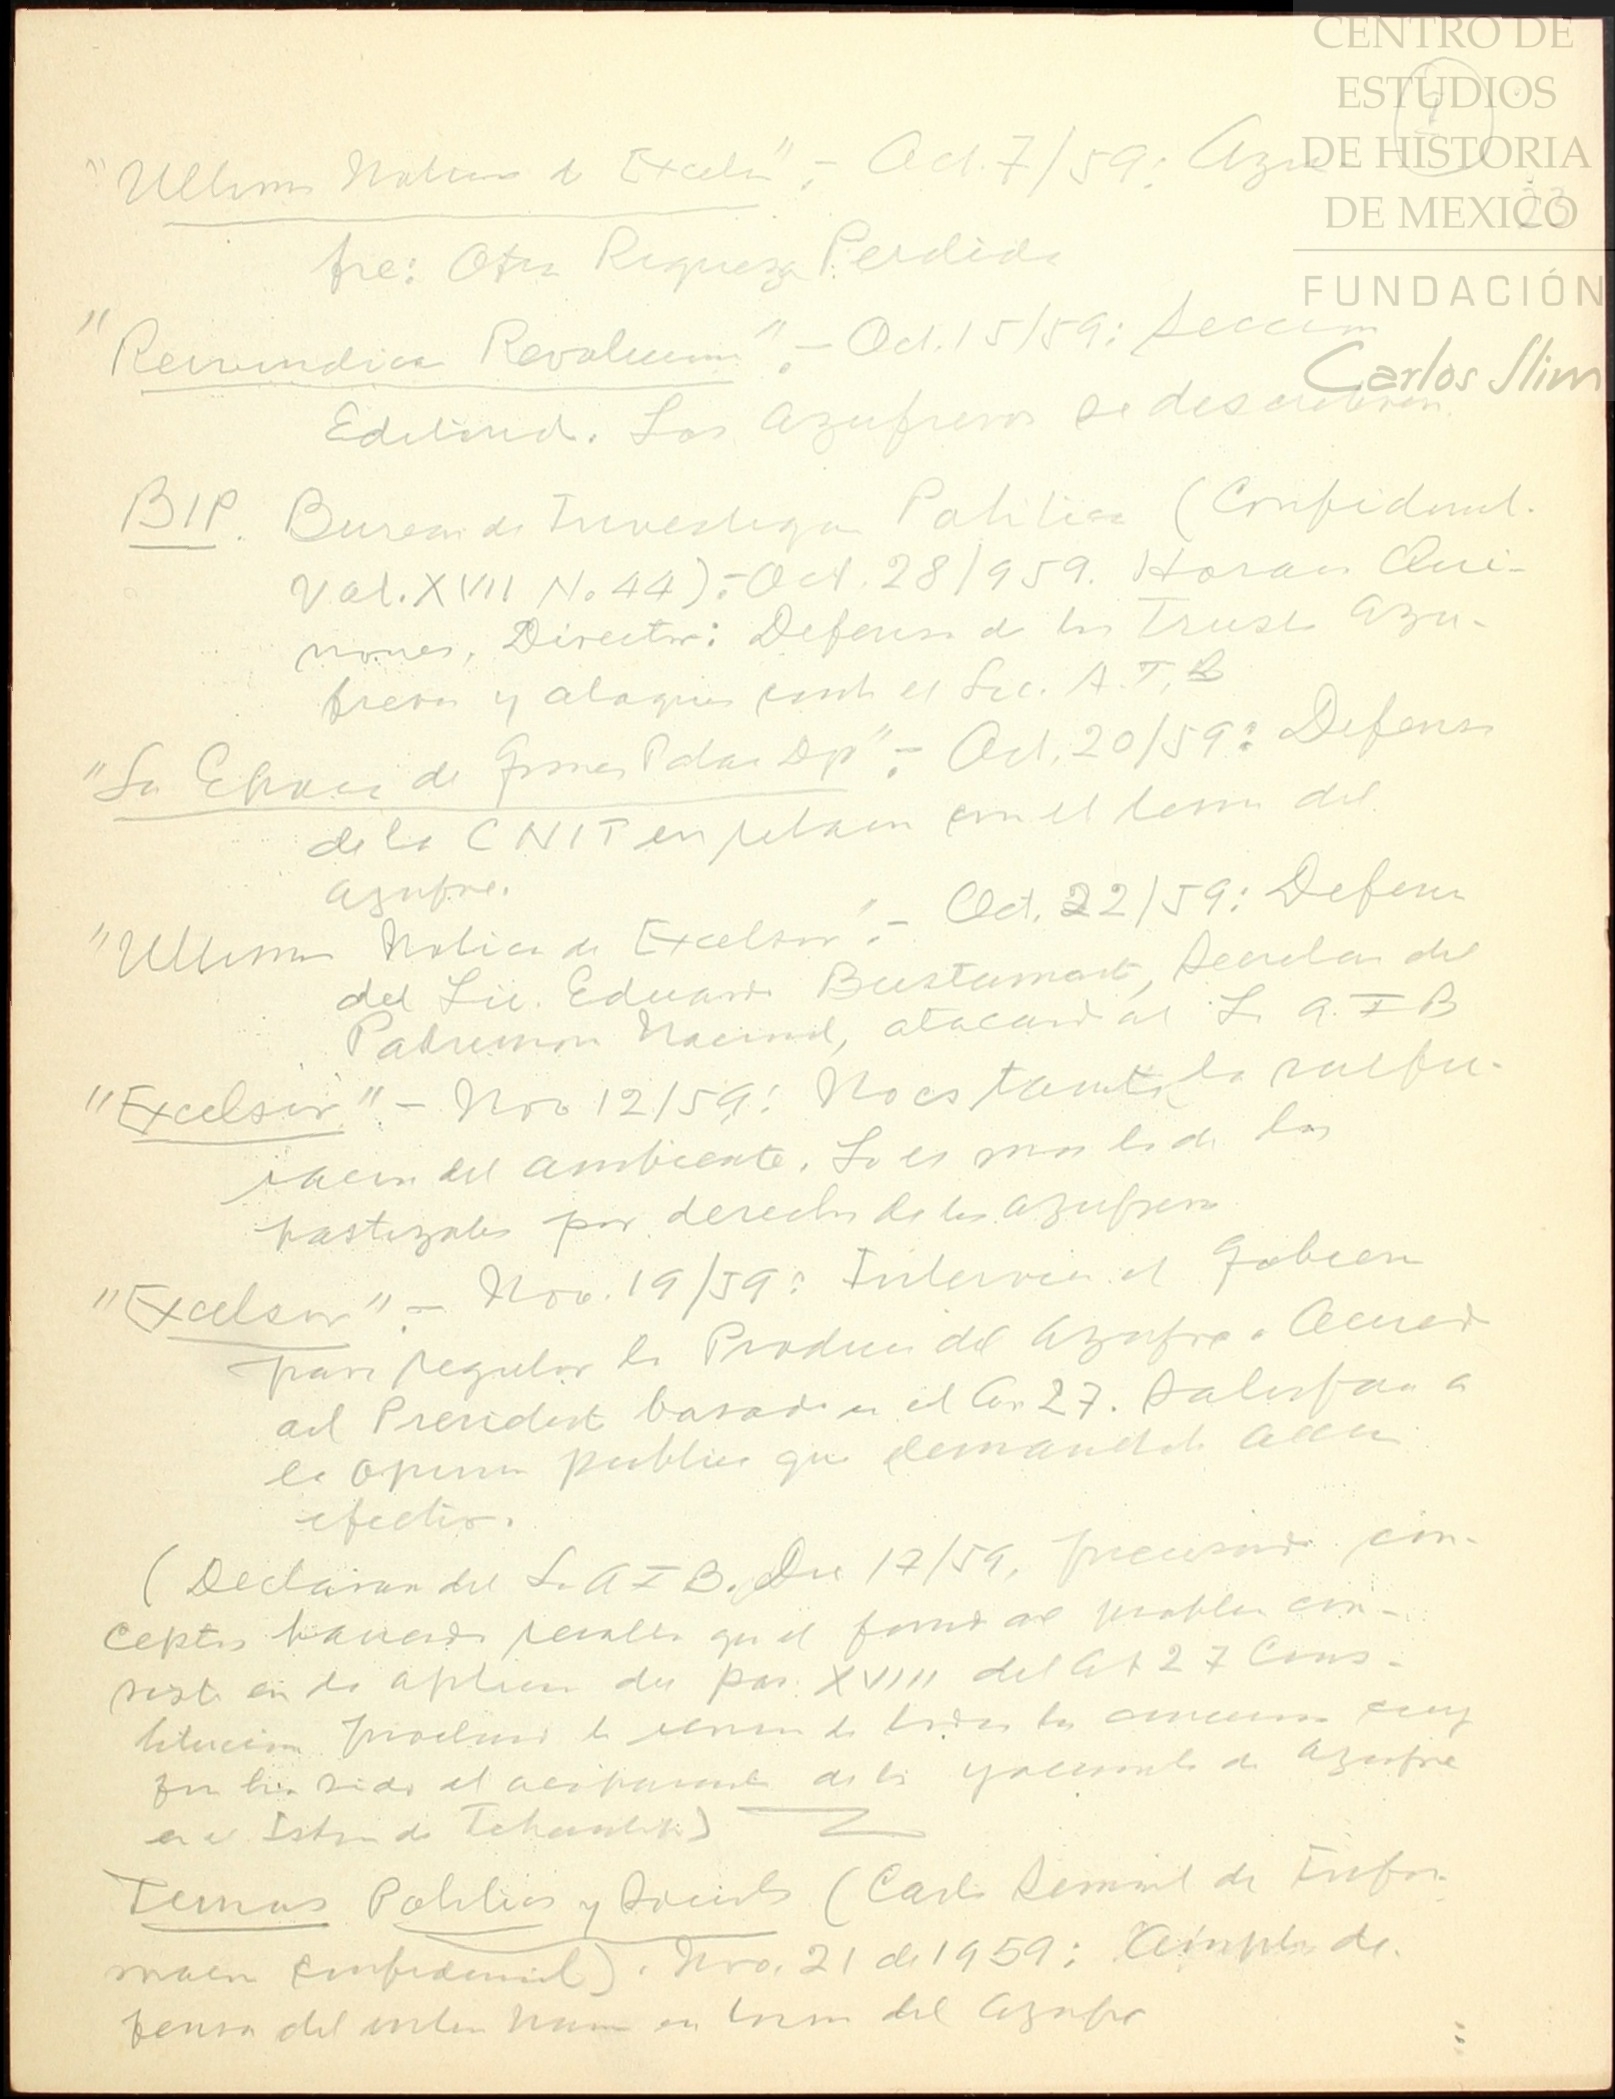 CENTRO DE
ESTUDIOS
DE HISTORIA
DE MEXICO
FUNDACIÓN
Carlos Slim
"Ultimas Noticias de Excelsior".- Oct. 7/59: Azu
fre: Otra Riqueza Perdida
"Reivindica Revolucion".- Oct. 15/59: Seccion
Editorial. Los Azufreros se descubren.
BIP. Bureau de Investigacion Politica (Confidencial.
Vol. XVII No. 44).- Oct. 28/959. Horacio Qui-
nones, Director: Defensa de los Trusts Azu-
freros y ataques contra el Lic. A. I. B
"La Epoca de San Dgo".- Oct. 20/59: Defensa
de la CNIT en relacion con el tema del
azufre.
"Ultimas Noticias de Excelsior".- Oct. 22/59: Defensa
del Lic. Eduardo Bustamante, Secretario del
Patrimonio Nacional, atacando al L. A. I B
"Excelsior".- Nov 12/59: No es tanta la
del ambiente. Lo es mas la de los
pastizales por derechos de los azufreros
"Excelsior".- Nov. 19/59: Intervien el Gobierno
para regular la Produccion del Azufre. Acuerdo
del Presidente basado en el Art 27. Satisface a
la opinion publica que demandaba accion
efectiva.
(Declaracion del L. A I B. Dic 17/59, precisando con-
ceptos haciendo resaltar que el fondo del problema con-
siste en la aplicacion del par. XVIII del Art 27 Cons-
titucion
el acaparamiento de los yacimientos de Azufre
en el Istmo de Tehuantepec)
Temas Politicos y Sociales (Carta Semanal de Infor-
macion Confidencial). Nov. 21 de 1959: Amplia de-
fensa del en torno del Azufre